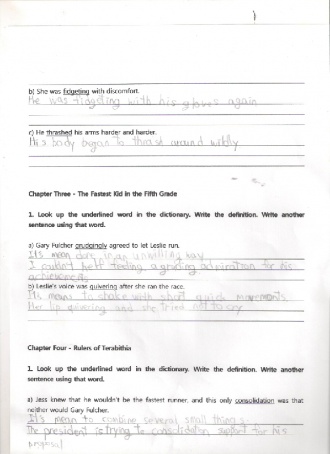 b) She was fidgeting with discomfort.
He was fidgeting with his gloves again
c) He thrashed his arms harder and harder.
His body began to thrash around wildly
Chapter Three - The Fastest Kid in the Fifth Grade
1. Look up the underlined word in the dictionary. Write the definition. Write another
sentence using that word.
a) Gary Fulcher grudgingly agreed to let Leslie run.
It's mean done in an unwilling way
I couldn't help feeling a grudging admiration for his
achievements
b) Leslie's voice was quivering after she ran the race.
It's means to shake with short quick movements
Her lip quivering and she tried not to cry
Chapter Four - Rulers of Terabithia
1. Look up the underlined word in the dictionary. Write the definition. Write another
sentence using that word.
a) Jess knew that he wouldn't be the fastest runner, and this only consolidation was that
neither would Gary Fulcher.
It's mean to combine several small things
The president is trying to consolidation support for his
proposal